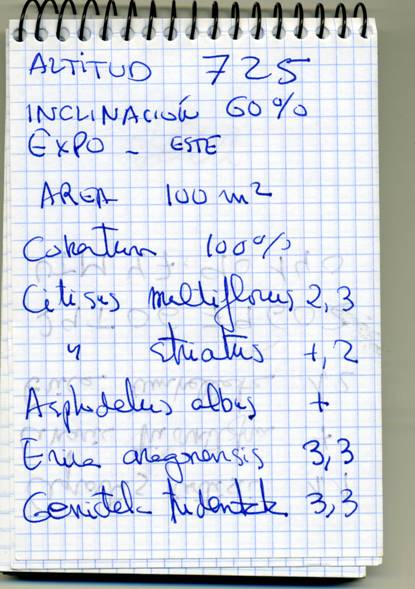 ALTITUD 725
INCLINACIÓN 60%
EXPO - ESTE
AREA 100 m2
Cobertura 100%
Citisus multiflorus 2,3
" striatus +,2
Asphodelus albus +
Erica aragonensis 3,3
Genistela tridentata 3,3